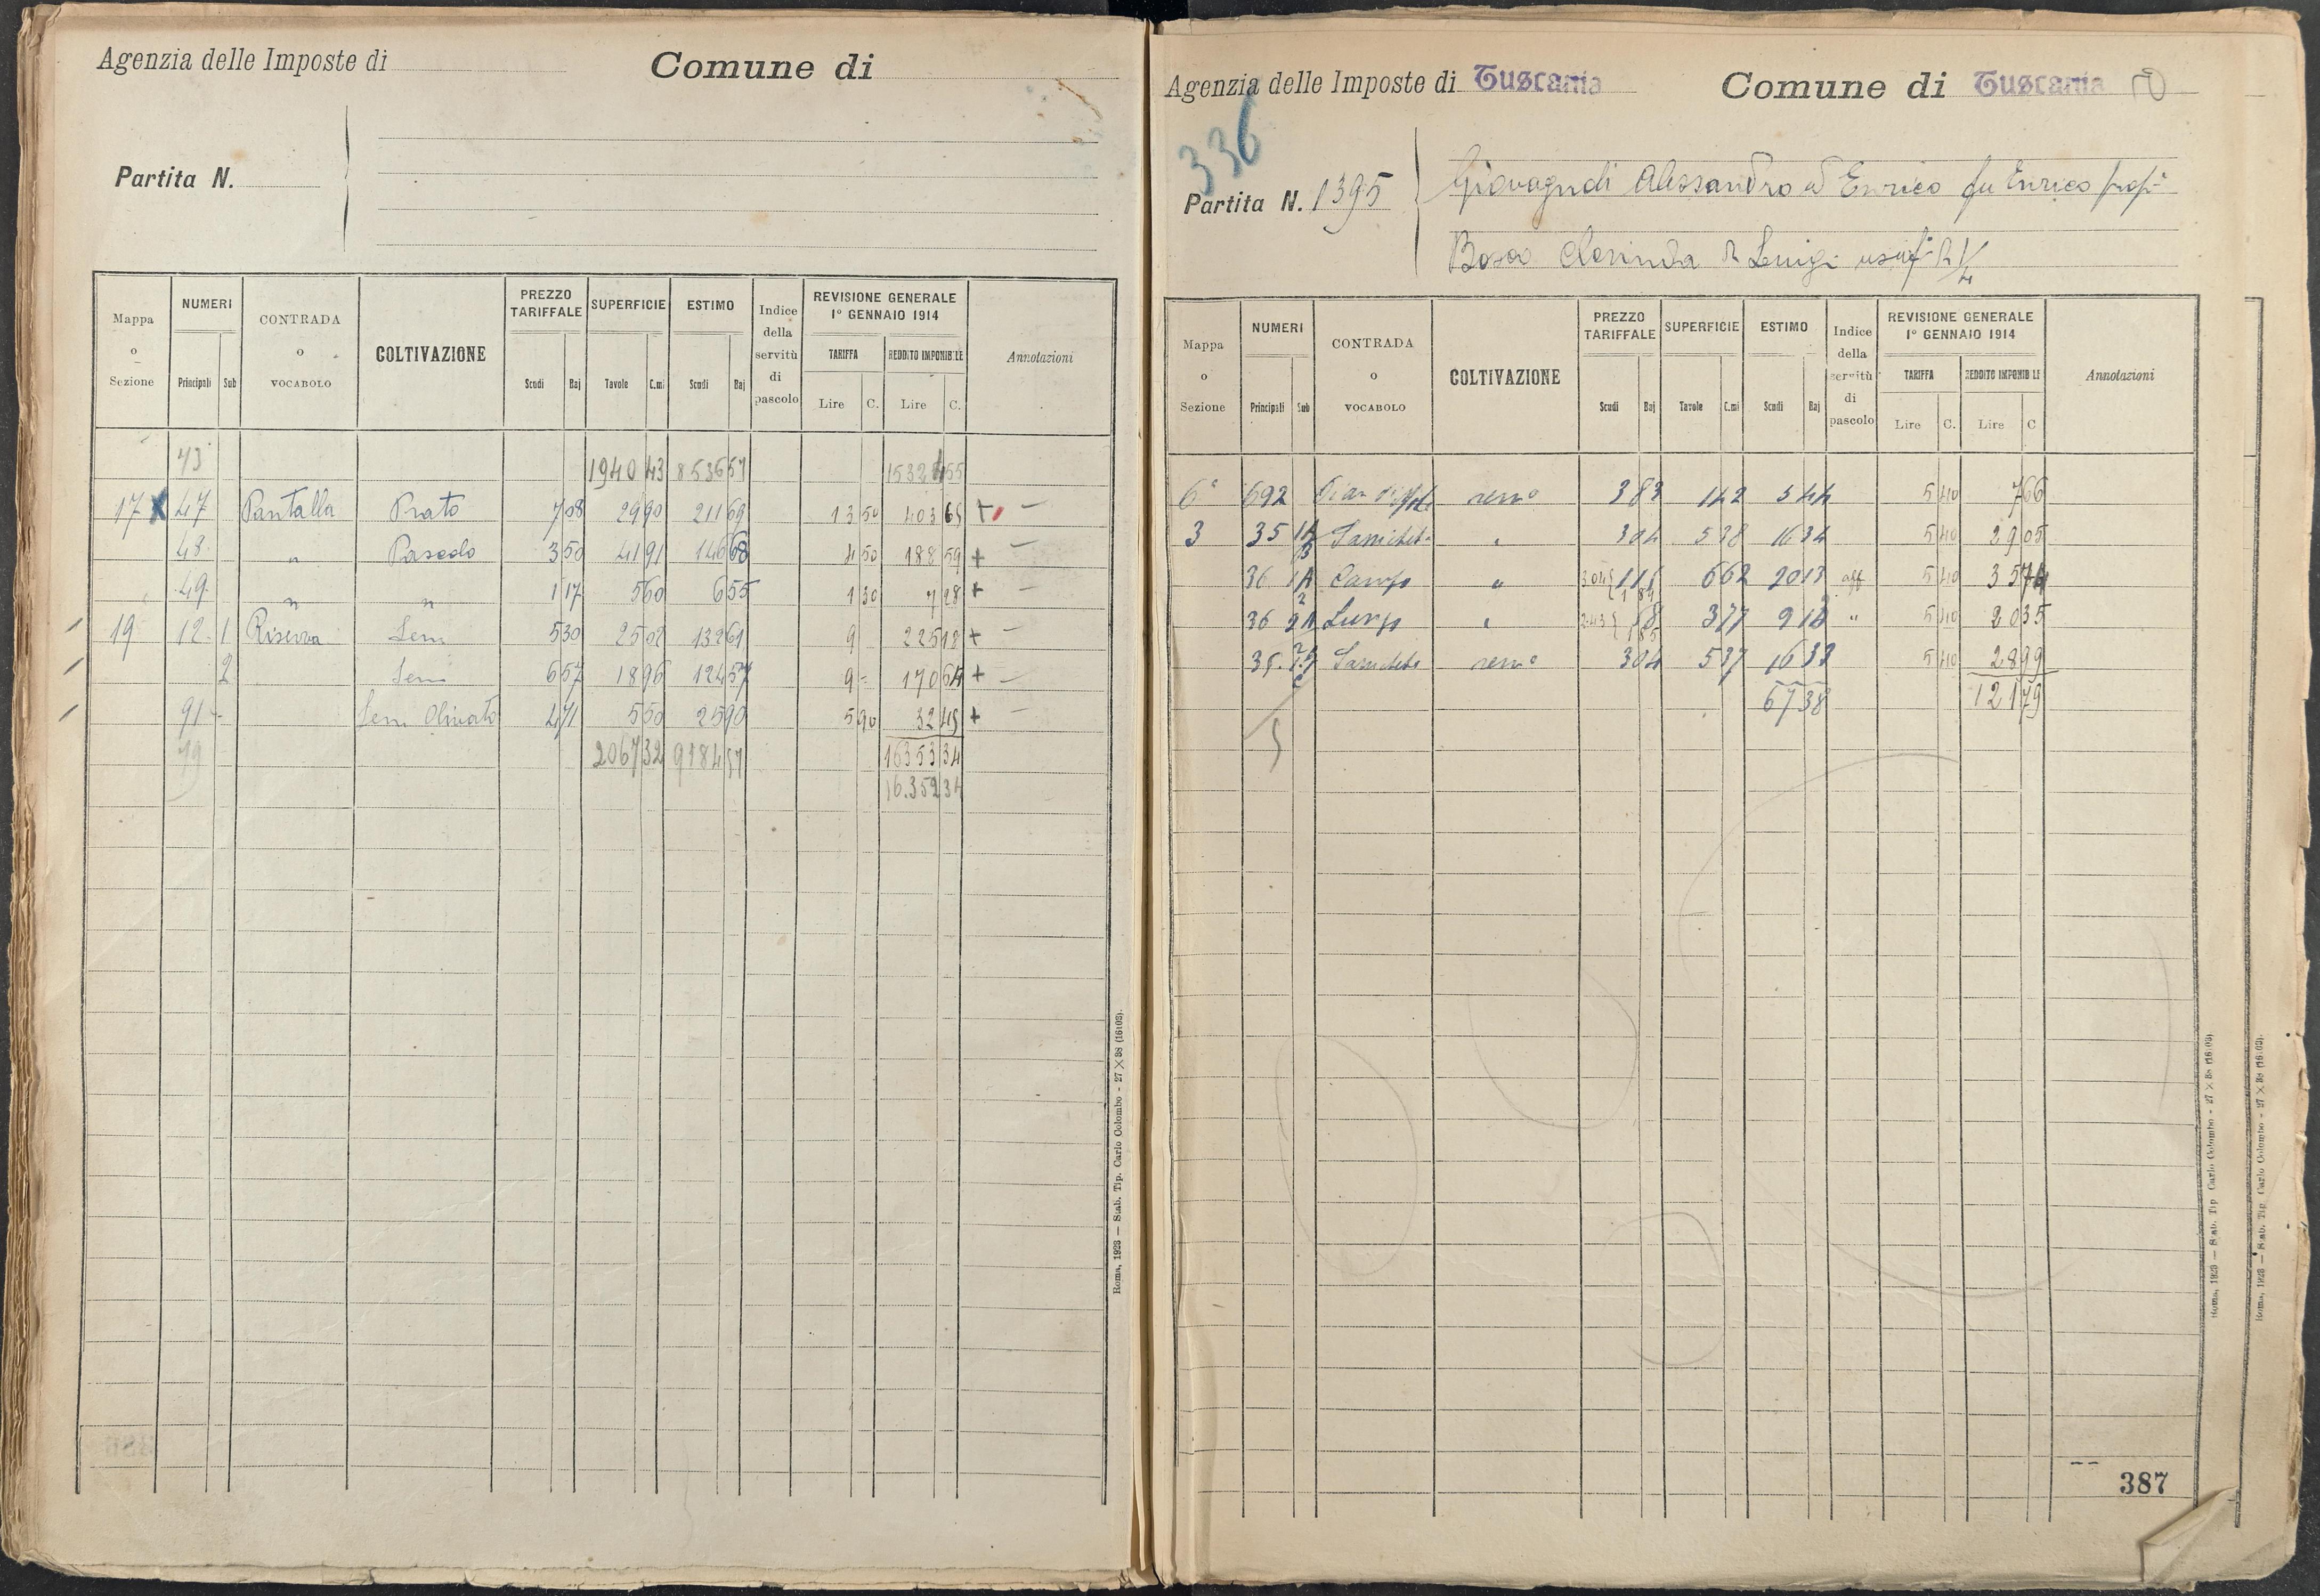 Agenzia delle Imposte di
Comune di
Partita N.
Mappa o Sezione
NUMERI
Principali Sub
CONTRADA o VOCABOLO
COLTIVAZIONE
PREZZO TARIFFALE
Scudi Baj
SUPERFICIE
Tavole C.mi
ESTIMO
Scudi Baj
Indice della servitù di pascolo
REVISIONE GENERALE
1° GENNAIO 1914
TARIFFA
Lire C.
REDDITO IMPONIBILE
Lire C.
Annotazioni
43 1940 43 8536 57 1532 4 55
17 x 47 Pantalla Prato 7 08 29 90 211 69 13 50 403 65 +
48 " Pascolo 3 50 41 91 146 68 4 50 188 59 +
49 " " 1 17 5 60 6 55 1 30 7 28 +
19 12 1 Riserva Sem 5 30 25 02 132 61 9 225 18 +
2 Sem 6 57 18 96 124 57 9 170 64 +
91 Sem Olivato 4 71 5 50 25 90 5 90 32 45 +
49 2067 32 9184 57 16353 34
16.352 34
Roma, 1923 — Stab. Tip. Carlo Colombo - 27 × 38 (16103).
Agenzia delle Imposte di Tuscania
Comune di Tuscania
336
Partita N. 1395
Giovagnoli Alessandro ed Enrico fu Enrico propi
Clorinda di Luigi usuf di 1/4
Mappa o Sezione
NUMERI
Principali Sub
CONTRADA o VOCABOLO
COLTIVAZIONE
PREZZO TARIFFALE
Scudi Baj
SUPERFICIE
Tavole C.mi
ESTIMO
Scudi Baj
Indice della servitù di pascolo
REVISIONE GENERALE
1° GENNAIO 1914
TARIFFA
Lire C.
REDDITO IMPONIBILE
Lire C
Annotazioni
6ª 692 Pian di semo 3 83 1 42 5 44 5 40 7 66
3 35 1A " 3 04 5 38 16 34 5 40 29 05
36 1A Campo " 3 04 6 62 20 13 aff 5 40 35 74
36 2A Lungo " 2 43 3 77 9 18 " 5 40 20 35
35 semo 3 04 5 37 16 33 5 40 28 99
67 38 121 79
5
387
Roma, 1923 — Stab. Tip Carlo Colombo - 27 × 38 (16103).
Roma, 1923 — Stab. Tip Carlo Colombo - 27 × 38 (16103).